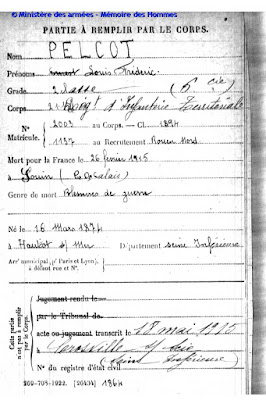 © Ministère des armées - Mémoire des Hommes
PARTIE À REMPLIR PAR LE CORPS.
Nom PELCOT
Prénoms Louis Frédéric
Grade 2 classe (6 cie)
Corps 21 Rég! d'Infanterie Territoriale
N° 2003 au Corps. — Cl. 1894
Matricule. 1137 au Recrutement Rouen Nord
Mort pour la France le 26 février 1915
à (P. de Calais)
Genre de mort Blessures de guerre
Né le 16 Mars 1874
à Hautot s/ Mer Département Seine Inférieure
Arr' municipal (p' Paris et Lyon),
à défaut rue et N°.
Cette partie
n'est pas à remplir
par le Corps.
Jugement rendu le
par le Tribunal de
acte ou jugement transcrit le 18 mai 1915
à s/ Scie
(Seine Inférieure)
N° du registre d'état civil
209-708-1922. [26434]